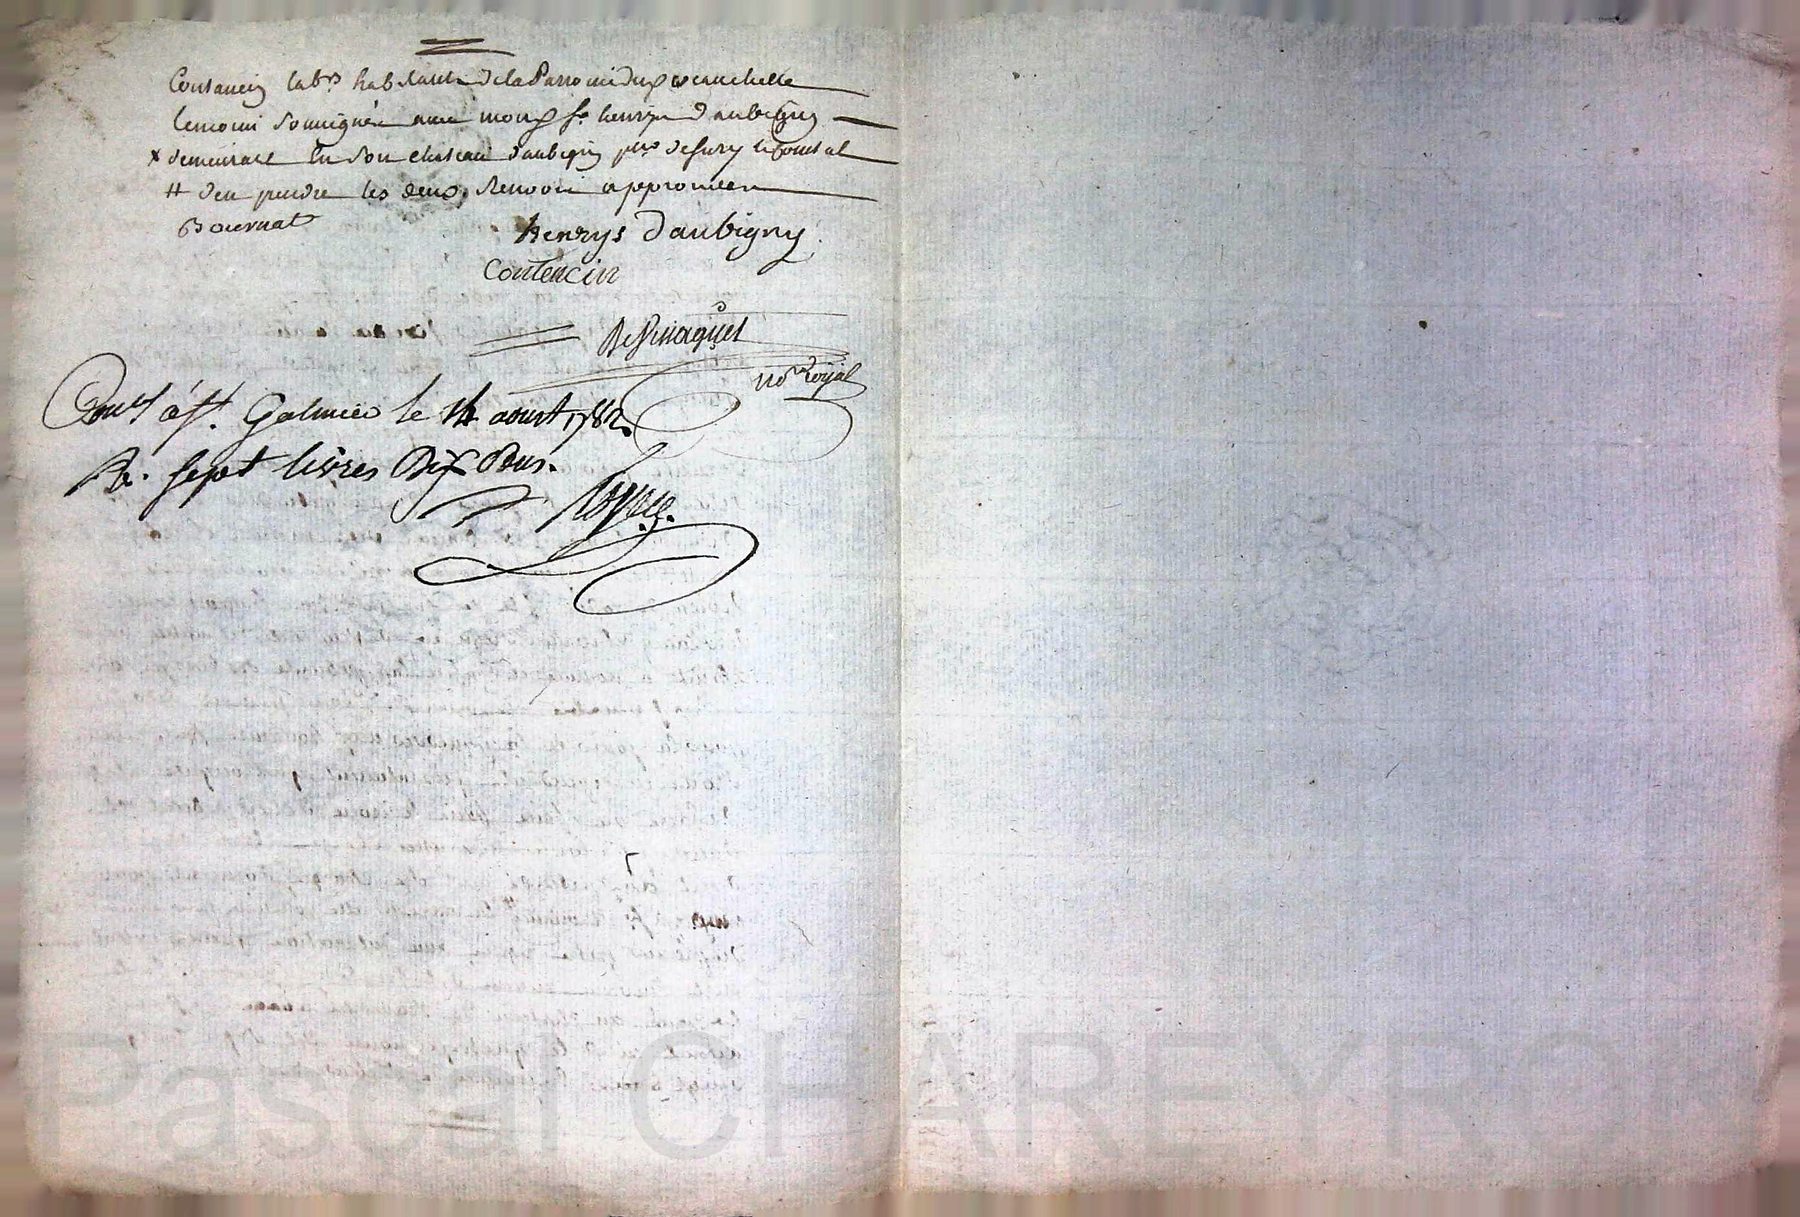 Contancin lab.rs habitants de la Parroisse du
temoins soussignés avec mond. s.r henrys d'aubigny
x demeurant en son chateau d'aubigny p.sse de sury le Comtal
# d'en prendre les deux renvois approuvées
Bournat
henrys d'aubigny
Contencin
no.re Royal
Con.lé à S.t Galmier le 14 aoust 1782.
Re. sept livres Dix sous.
Pascal CHAREYRON